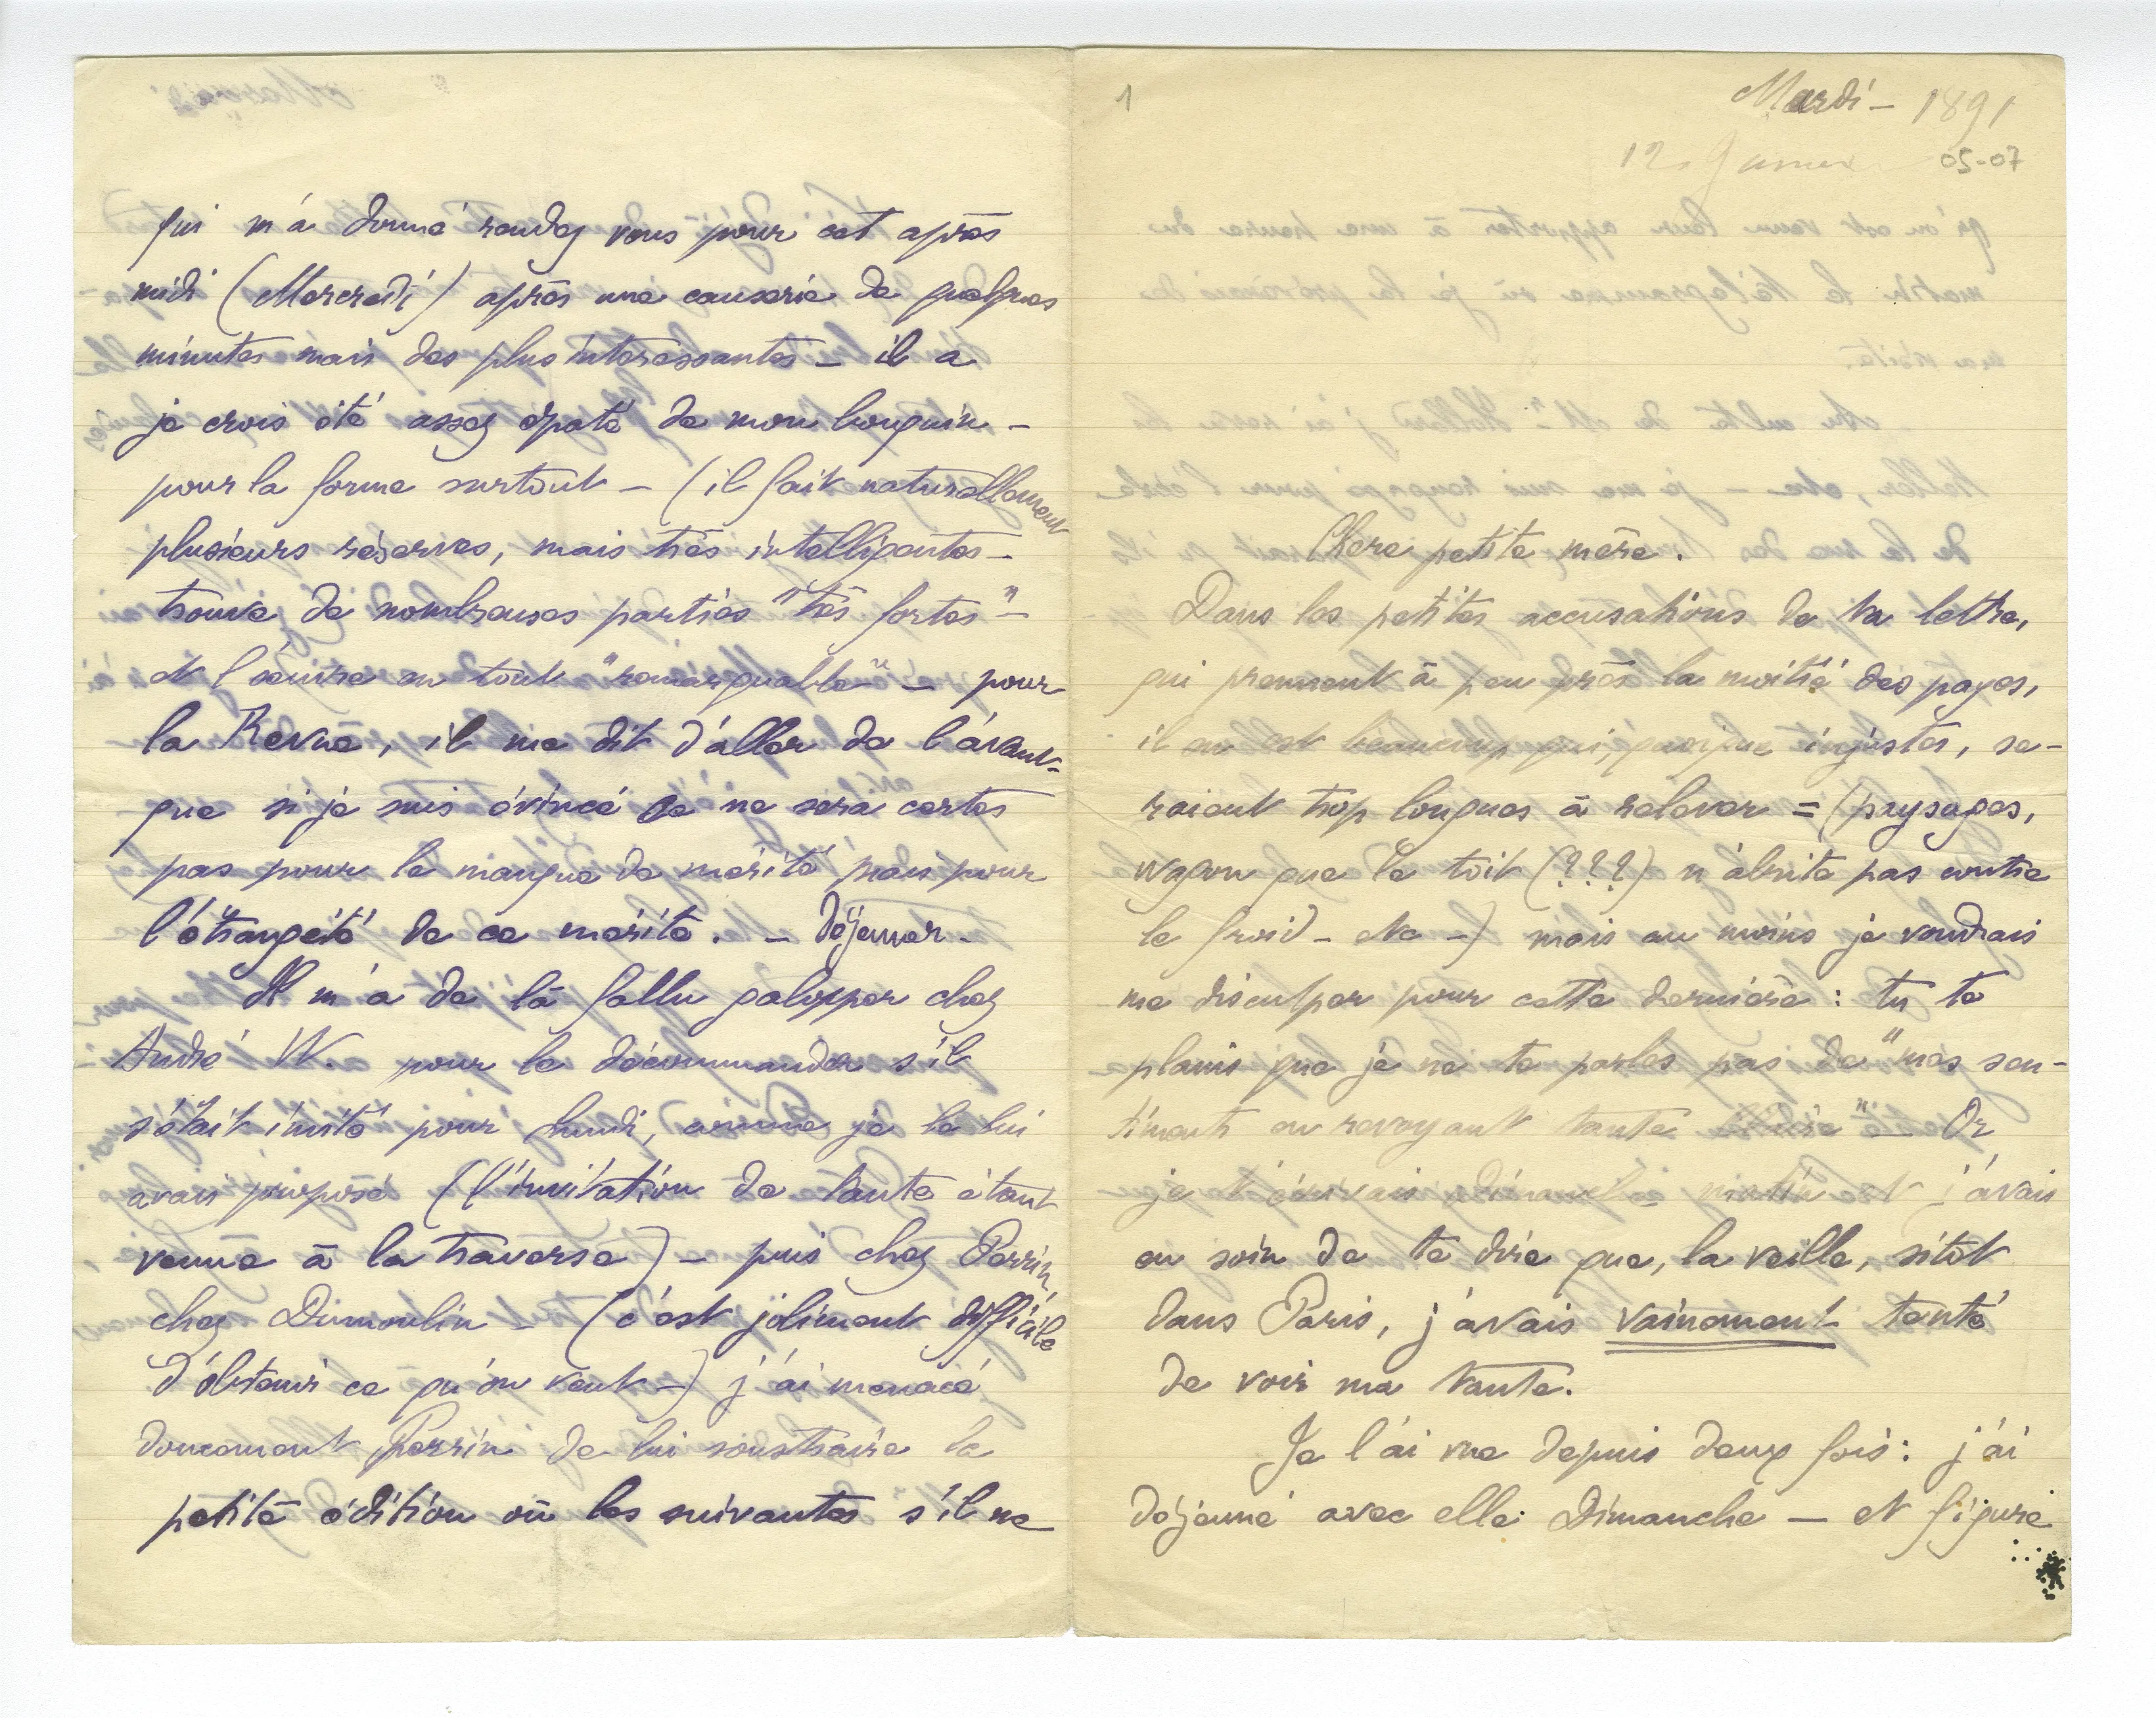 1
Mardi – 1891
12 Janvier
05-07
Chere petite mère.
Dans les petites accusations de ta lettre,
qui prennent à peu près la moitié des pages,
il en est beaucoup qui, quoique injustes, se-
raient trop longues à relever = (paysages,
wagon que le toit (???) n'abrite pas contre
le froid – etc –) mais au moins je voudrais
me disculper pour cette dernière : tu te
plains que je ne te parles pas de "mes sen-
timents en revoyant tante" – Or
je t'écrivais dimanche matin et j'avais
eu soin de te dire que, la veille, sitôt
dans Paris, j'avais vainement tenté
de voir ma tante.
Je l'ai vue depuis deux fois : j'ai
déjeuné avec elle Dimanche – et figuré
qui m'a donné rendez vous pour cet après
midi (Mercredi) après une causerie de quelques
minutes mais des plus interessantes – il a
je crois été assez épaté de mon bouquin –
pour la forme surtout – (il fait naturellement
plusieurs réserves, mais très intelligentes –
trouve de nombreuses parties "très fortes" –
et l'œuvre en tout "remarquable" – pour
la Revue, il me dit d'aller de l'avant –
que si je suis évincé ce ne sera certes
pas pour le manque de mérite mais pour
l'étrangeté de ce mérite. – Déjeuner –
Il m'a de là fallu galopper chez
André W. pour le décommander s'il
s'était invité pour lundi, comme je le lui
avais proposé (l'invitation de tante étant
venue à la traverse) – puis chez Perrin,
chez Dumoulin – (c'est joliment difficile
d'obtenir ce qu'on veut –) j'ai menacé
doucement Perrin de lui soustraire la
petite édition ou les suivantes s'il ne